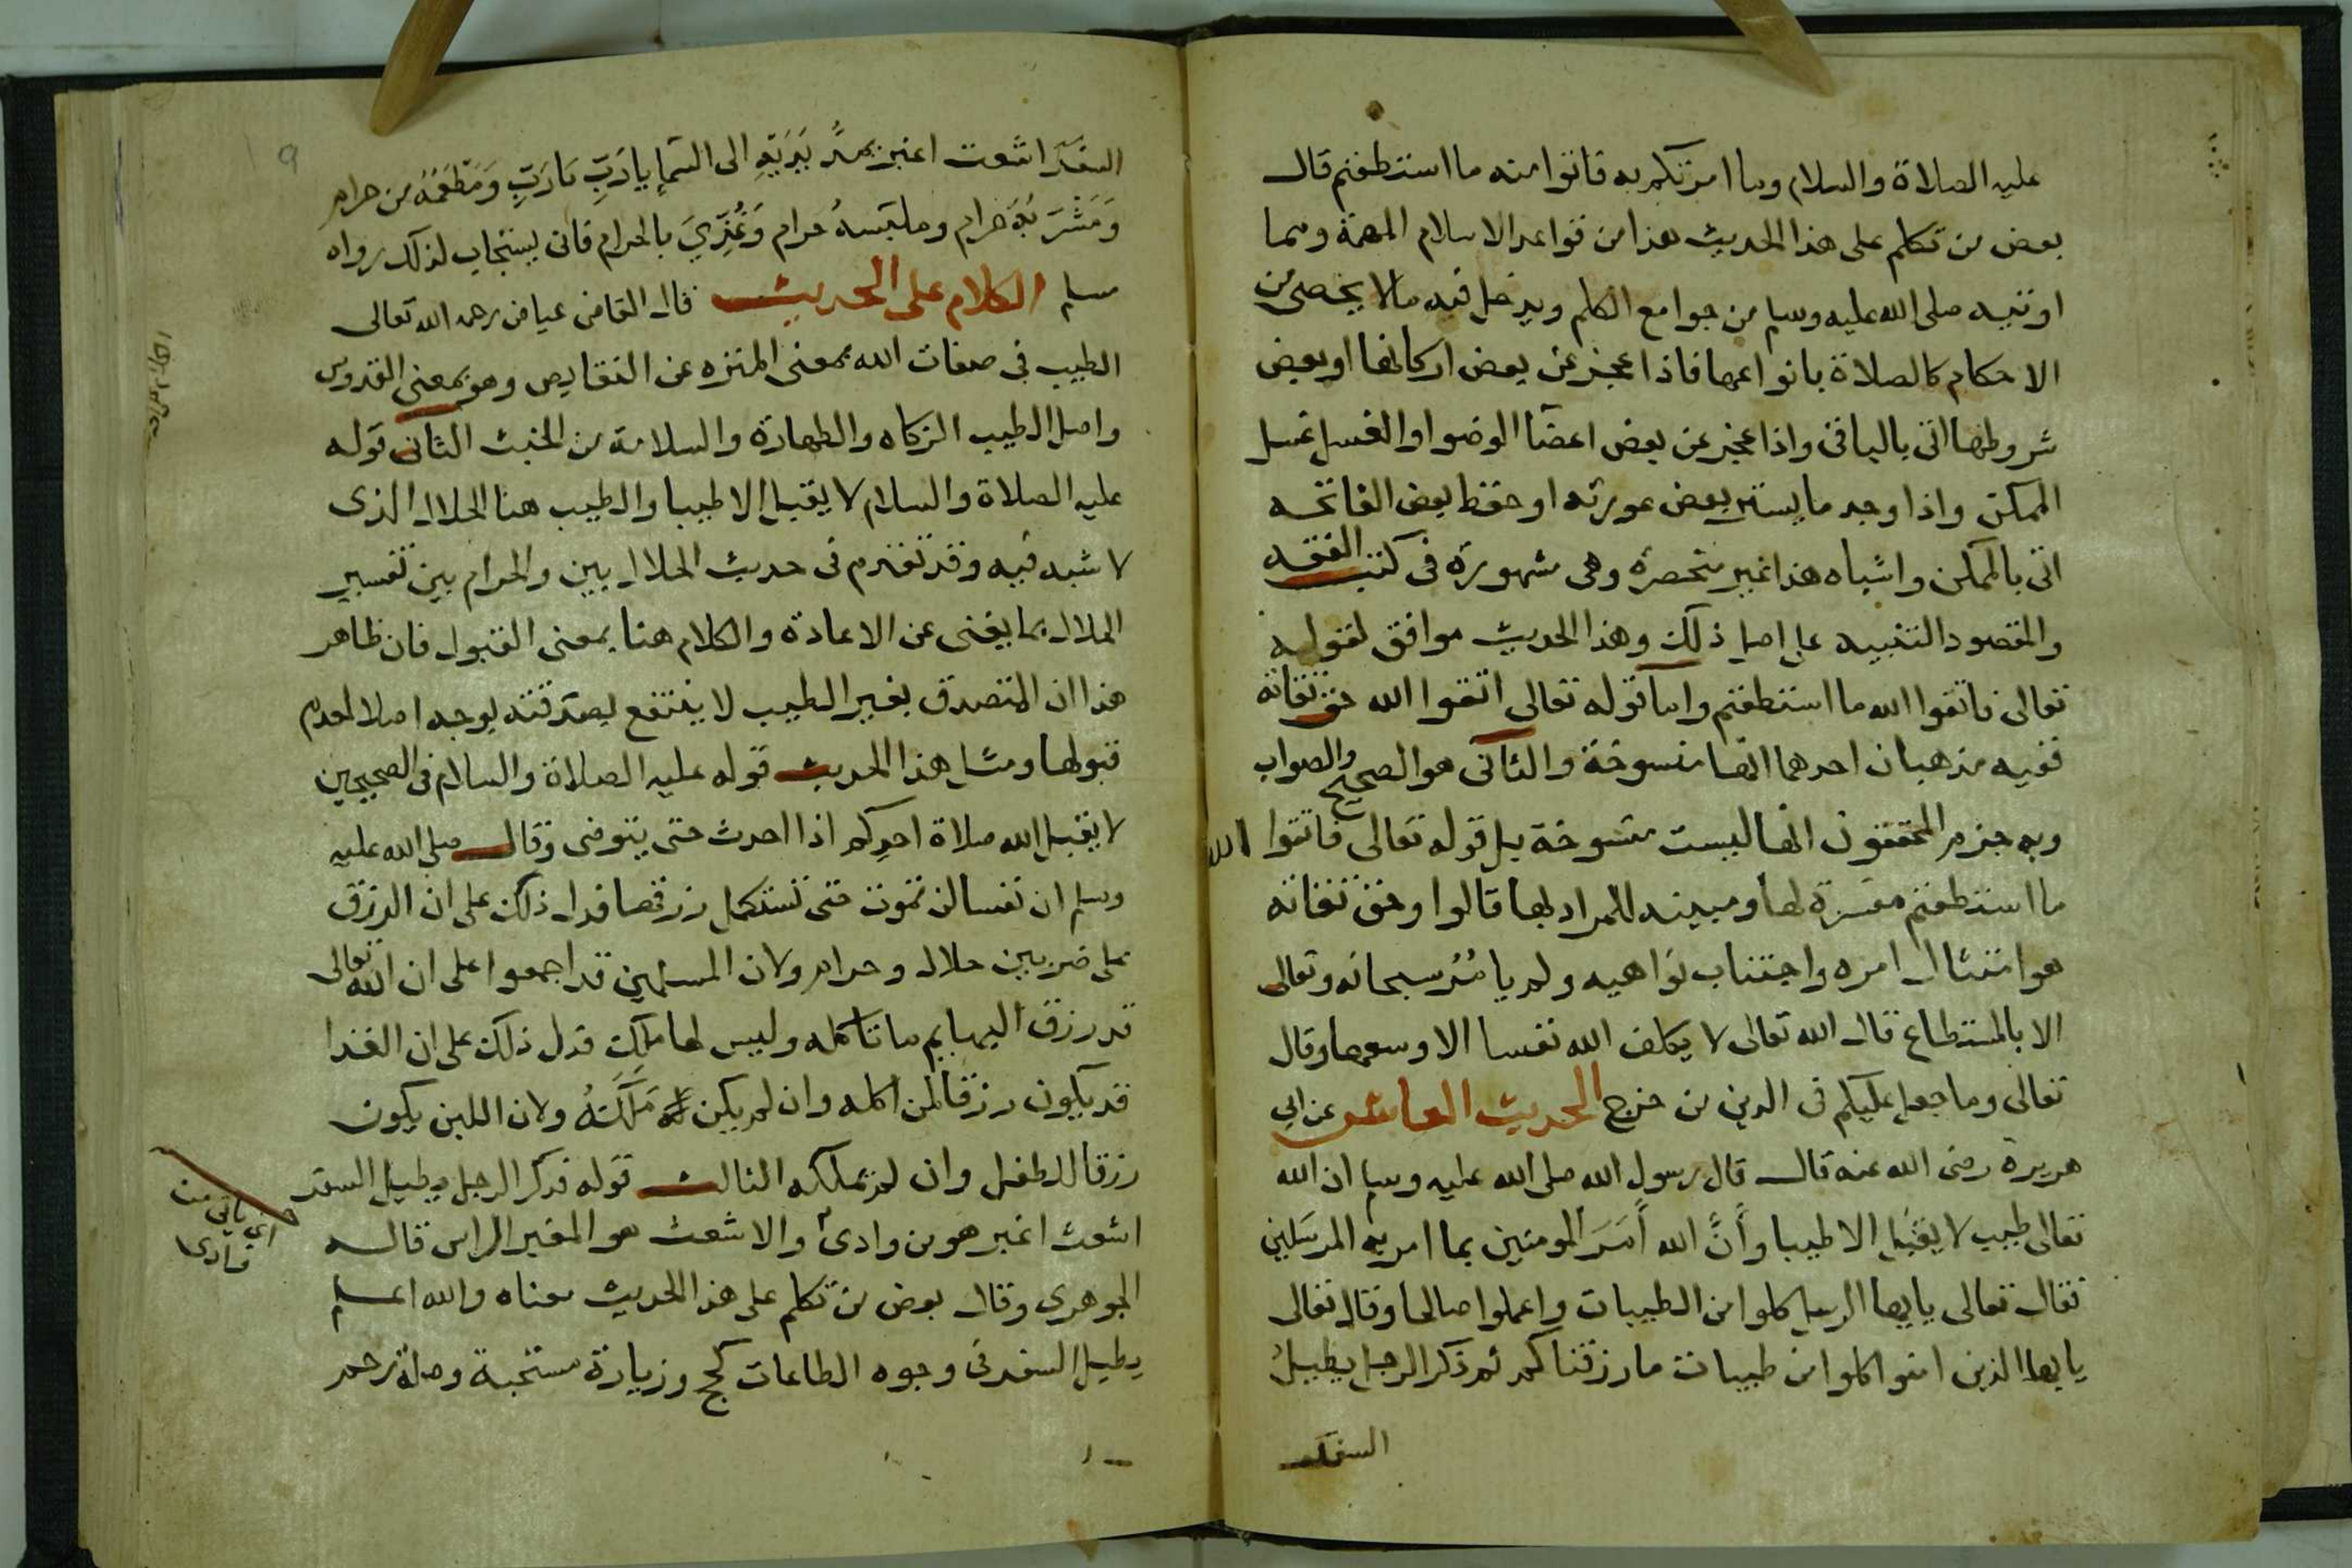 عليه الصلاة والسلام وما امرتكم به فاتوا منه ما استطعتم قال
بعض من تكلم على هذا الحديث هذا من قواعد الاسلام المهمة ومما
اوتيه صلى الله عليه وسلم من جوامع الكلم ويدخل فيه مالا يحصى من
الاحكام كالصلاة بانواعها فاذا عجز عن بعض اركانها او بعض
شروطها اتى بالباقي واذا عجز عن بعض اعضآ الوضوا والغسل غسل
الممكن واذا وجد ما يستر بعض عورته او حفظ بعض الفاتحه
اتى بالممكن واشباه هذا غير منحصرة وهي مشهورة في كتب الفقه
والمقصود التنبيه على اصل ذلك وهذا الحديث موافق لقوله
تعالى فاتقوا الله ما استطعتم واما قوله تعالى اتقوا الله حق تقاته
ففيه مذهبان احدهما انها منسوخة والثآنى هو الصحيح والصواب
وبه جزم المحققون انها ليست منسوخة بل قوله تعالى فاتقوا الله
ما استطعتم مفسرة لها ومبينه للمراد بها قالوا وحق تقاته
هو امتثال امره واجتناب نواهيه ولم يامُرْ سبحانه وتعالى
الا بالمستطاع قال الله تعالى لا يكلف الله نفسا الا وسعها وقال
تعالى وما جعل عليكم في الدين من حرج الحديث العاشر عن ابي
هريرة رضى الله عنه قال قال رسول الله صلى الله عليه وسلم ان الله
تعالى طيب لا يقبَل الا طيبا وأنَّ الله أَمَرَ المومنين بما امر به المرسَلين
فقال تعالى يايها الرسل كلوا من الطيبات واعملوا صالحا وقال تعالى
يايها الذين امنوا كلوا من طيبات ما رزقناكم ثم ذكر الرجل يطيلُ
السفَر
السفَرَ اشعث اغبر يمدُّ يَدَيَهِ الى السمآءِ يا رَبِّ يَا رَبِّ وَمَطْعَمُهُ من حرام
وَمَشْرَبُهُ حَرام وملبَسهُ حرام وَغُذِيَ بالحرام فانى يستجاب لذلك رواه
مسلم الكلام على الحديث قال القاضى عياض رحمه الله تعالى
الطيب في صفات الله بمعنى المنزه عن النقايص وهو بمعنى القدوس
واصل الطيب الزكاه والطهارة والسلامة من الخبث الثآنى قوله
عليه الصلاة والسلام لا يقبل الا طيبا والطيب هنا الحلال الذى
لا شبه فيه وقد تقدم فى حديث الحلال بين والحرام بين تفسير
الحلال بما يغنى عن الاعادة والكلام هنا بمعنى القبول فان ظاهر
هذا ان المتصدق بغير الطيب لا ينتفع بصدقته بوجه اصلا لعدم
قبولها ومثل هذا الحديث قوله عليه الصلاة والسلام فى الصحيحين
لا يقبل الله صلاة احدكم اذا احدث حتى يتوضى وقال صلى الله عليه
وسلم ان نفسا لن تموت حتى تستكمل رزقها فدل ذلك على ان الرزق
على ضربين حلال وحرام ولان المسلمين قد اجمعوا على ان الله تعالى
قد رزق البهايم ما تاكله وليس لها ملك فدل ذلك على ان الغذا
قد يكون رزقا لمن اكله وان لم يكن مَلَكَهُ ولان اللبن يكون
رزقا للطفل وان لم يملكه الثالث قوله ذكر الرجل يطيل السفر
اشعث اغبر هو من وادى والاشعث هو المغبر الراس قاله
الجوهرى وقال بعض من تكلم على هذا الحديث معناه والله اعلم
يطيل السفر فى وجوه الطاعات كحج وزيارة مستحبة وصلة رحم
اى ياتى من
وادى
٩